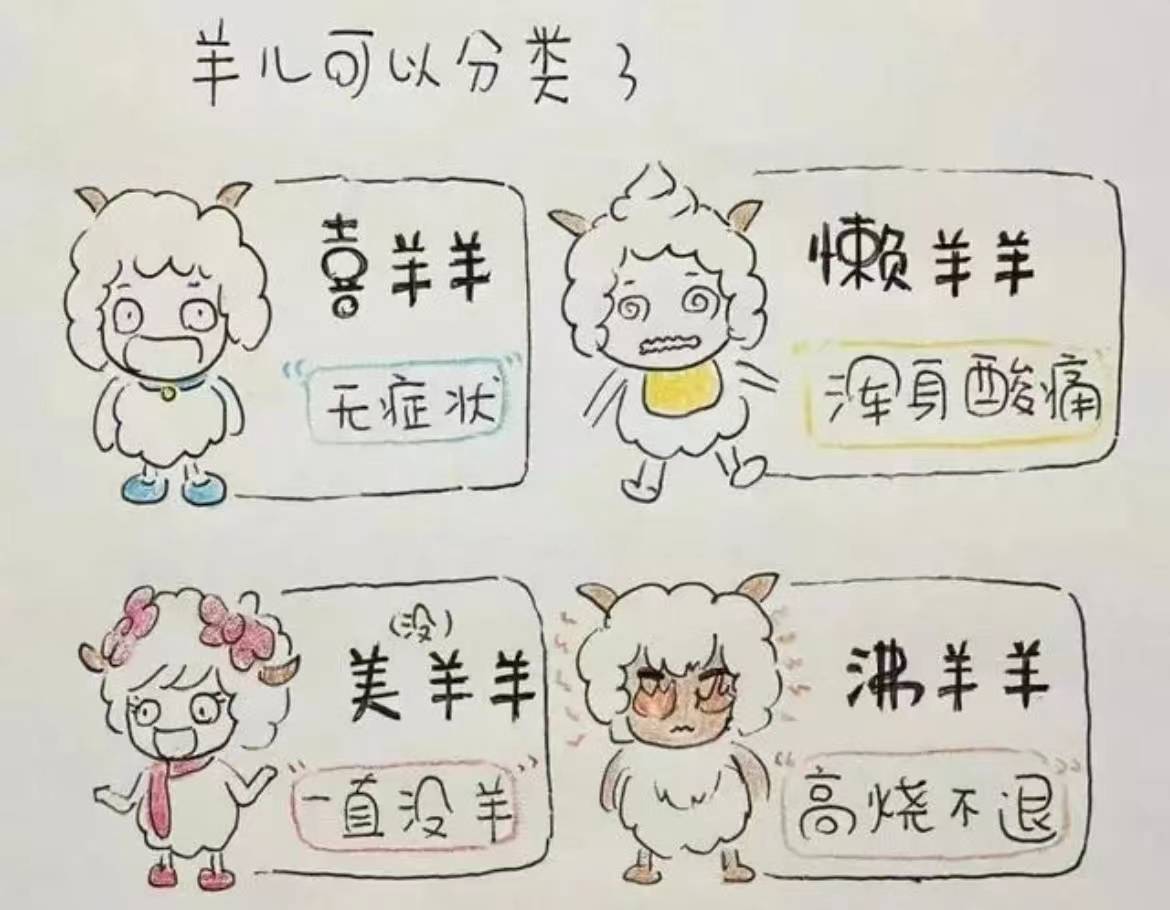 羊儿可以分类了
喜羊羊
"无症状"
懒羊羊
"浑身酸痛"
(没)
美羊羊
"一直没羊"
沸羊羊
"高烧不退"